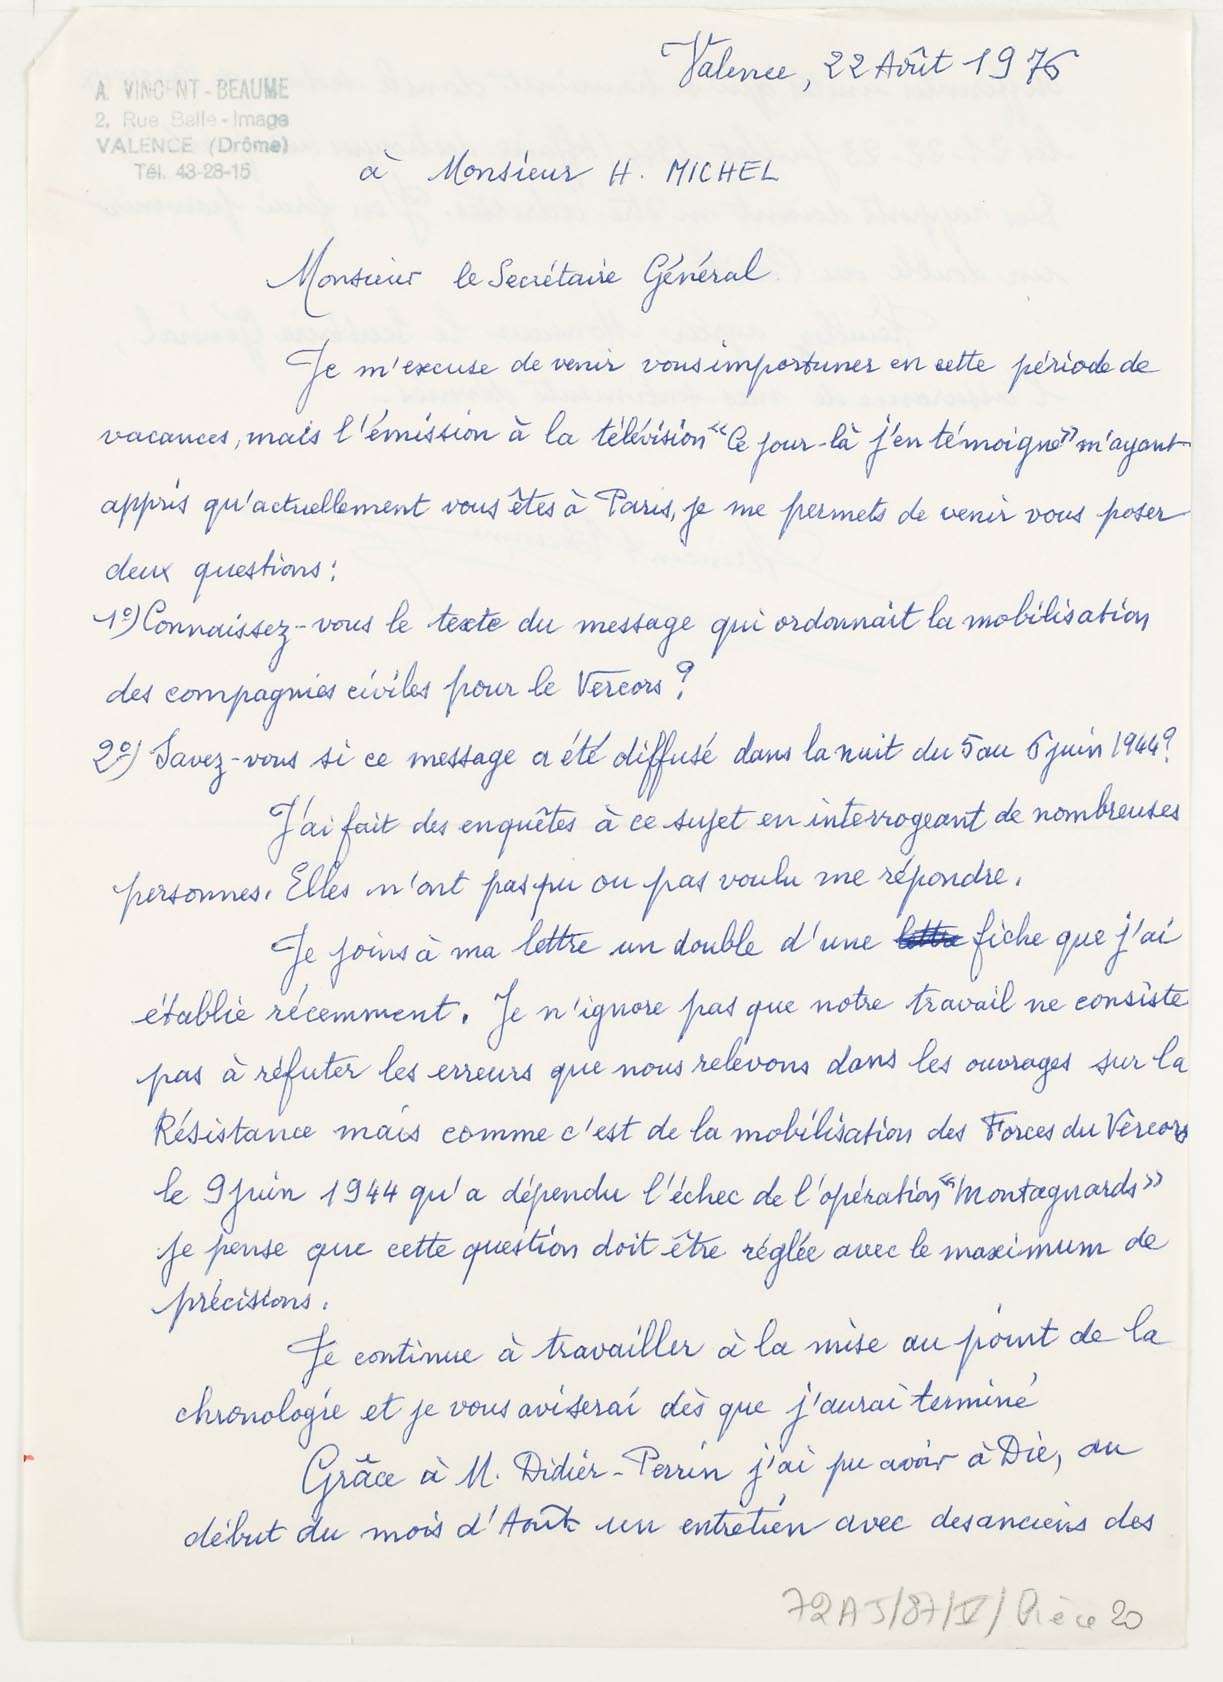 Valence, 22 Août 1976
A. VINCENT-BEAUME
2, Rue Belle-Image
VALENCE (Drôme)
Tél. 43-28-15
à Monsieur H. MICHEL
Monsieur le Secrétaire Général
Je m'excuse de venir vous importuner en cette période de
vacances, mais l'émission à la télévision "Ce jour-là j'en témoigne" m'ayant
appris qu'actuellement vous êtes à Paris, je me permets de venir vous poser
deux questions:
1º) Connaissez-vous le texte du message qui ordonnait la mobilisation
des compagnies civiles pour le Vercors?
2º) Savez-vous si ce message a été diffusé dans la nuit du 5 au 6 juin 1944?
J'ai fait des enquêtes à ce sujet en interrogeant de nombreuses
personnes. Elles n'ont pas pu ou pas voulu me répondre.
Je joins à ma lettre un double d'une lettre fiche que j'ai
établie récemment. Je n'ignore pas que notre travail ne consiste
pas à réfuter les erreurs que nous relevons dans les ouvrages sur la
Résistance mais comme c'est de la mobilisation des Forces du Vercors
le 9 juin 1944 qu'a dépendu l'échec de l'opération "Montagnards"
je pense que cette question doit être réglée avec le maximum de
précisions.
Je continue à travailler à la mise au point de la
chronologie et je vous aviserai dès que j'aurai terminé
Grâce à M. Didier-Perrin j'ai pu avoir à Die, au
début du mois d'Août un entretien avec des anciens des
72AJ/87/IV/Pièce 20